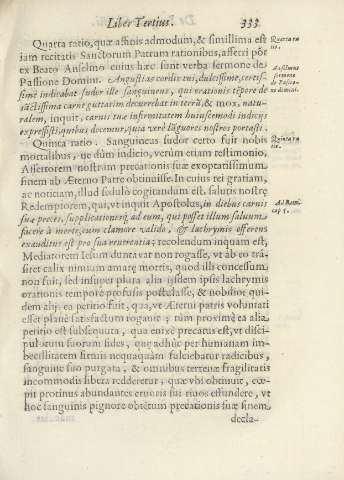 Liber Tertius.
333.
Quarta ratio, quæ affinis admodum, & simillima est
iam recitatis Sanctorum Patrum rationibus, afferri põt
ex Beato Anselmo cuius hæc sunt verba sermone de
Passione Domini. Angustias cordis tui, dulcissime, certis-
simè indicabat sudor ille sanguineus, qui orationis tẽpore de
sãctissima carne guttatim decurrebat in terrã, & mox, natu-
ralem, inquit, carnis tuæ infirmitatem huiuscemodi indicijs
expressisti, quibus docemur, quia verè lãguores nostros portasti.
Quinta ratio. Sanguineus sudor certo fuit nobis
mortalibus, ne dũm indicio, verùm etiam testimonio,
Assertorem nostrum precationis suæ exoptatissimum
finem ab Æterno Patre obtinuisse. In cuius rei gratiam,
ac notitiam, illud sedulò cogitandum est, salutis nostrę
Redemptorem, qui, vt inquit Apostolus, in diebus carnis
suæ preces, supplicationesq; ad eum, qui posset illum saluum
facere à morte, cum clamore valido, & lachrymis offerens
exauditus est pro sua reuerentia; recolendum inquam est,
Mediatorem Iesum dunta xat non rogasse, vt ab eo trã-
siret calix nimium amarę mortis, quod illi concessum
non fuit, sed insuper plura alia ijsdem ipsis lachrymis
orationis tempore profusis postulasse, & nobilior qui-
dem alijs ea petitio fuit, qua, vt Æterni patris voluntati
esset planè satisfactum rogauit; tùm proxime ea alia
petitio est subsequuta, qua enixè precatus est, vt disci-
pulorum suorum fides, quę adhuc per humanam im-
becillitatem firmis nequaquàm fulciebatur radicibus,
sanguine suo purgata, & omnibus terrenæ fragilitatis
incommodis libera redderetur; quæ vbi obtinuit, cœ-
pit protinus abundantes cruoris sui riuos effundere, vt
hoc sanguinis pignore obtẽtum precationis suæ finem
decla-
Quarta ra-
tio.
Anselmus
sermone
de Passio-
ne domini.
Quinta ra-
tio.
Ad Hebr.
cap 5.